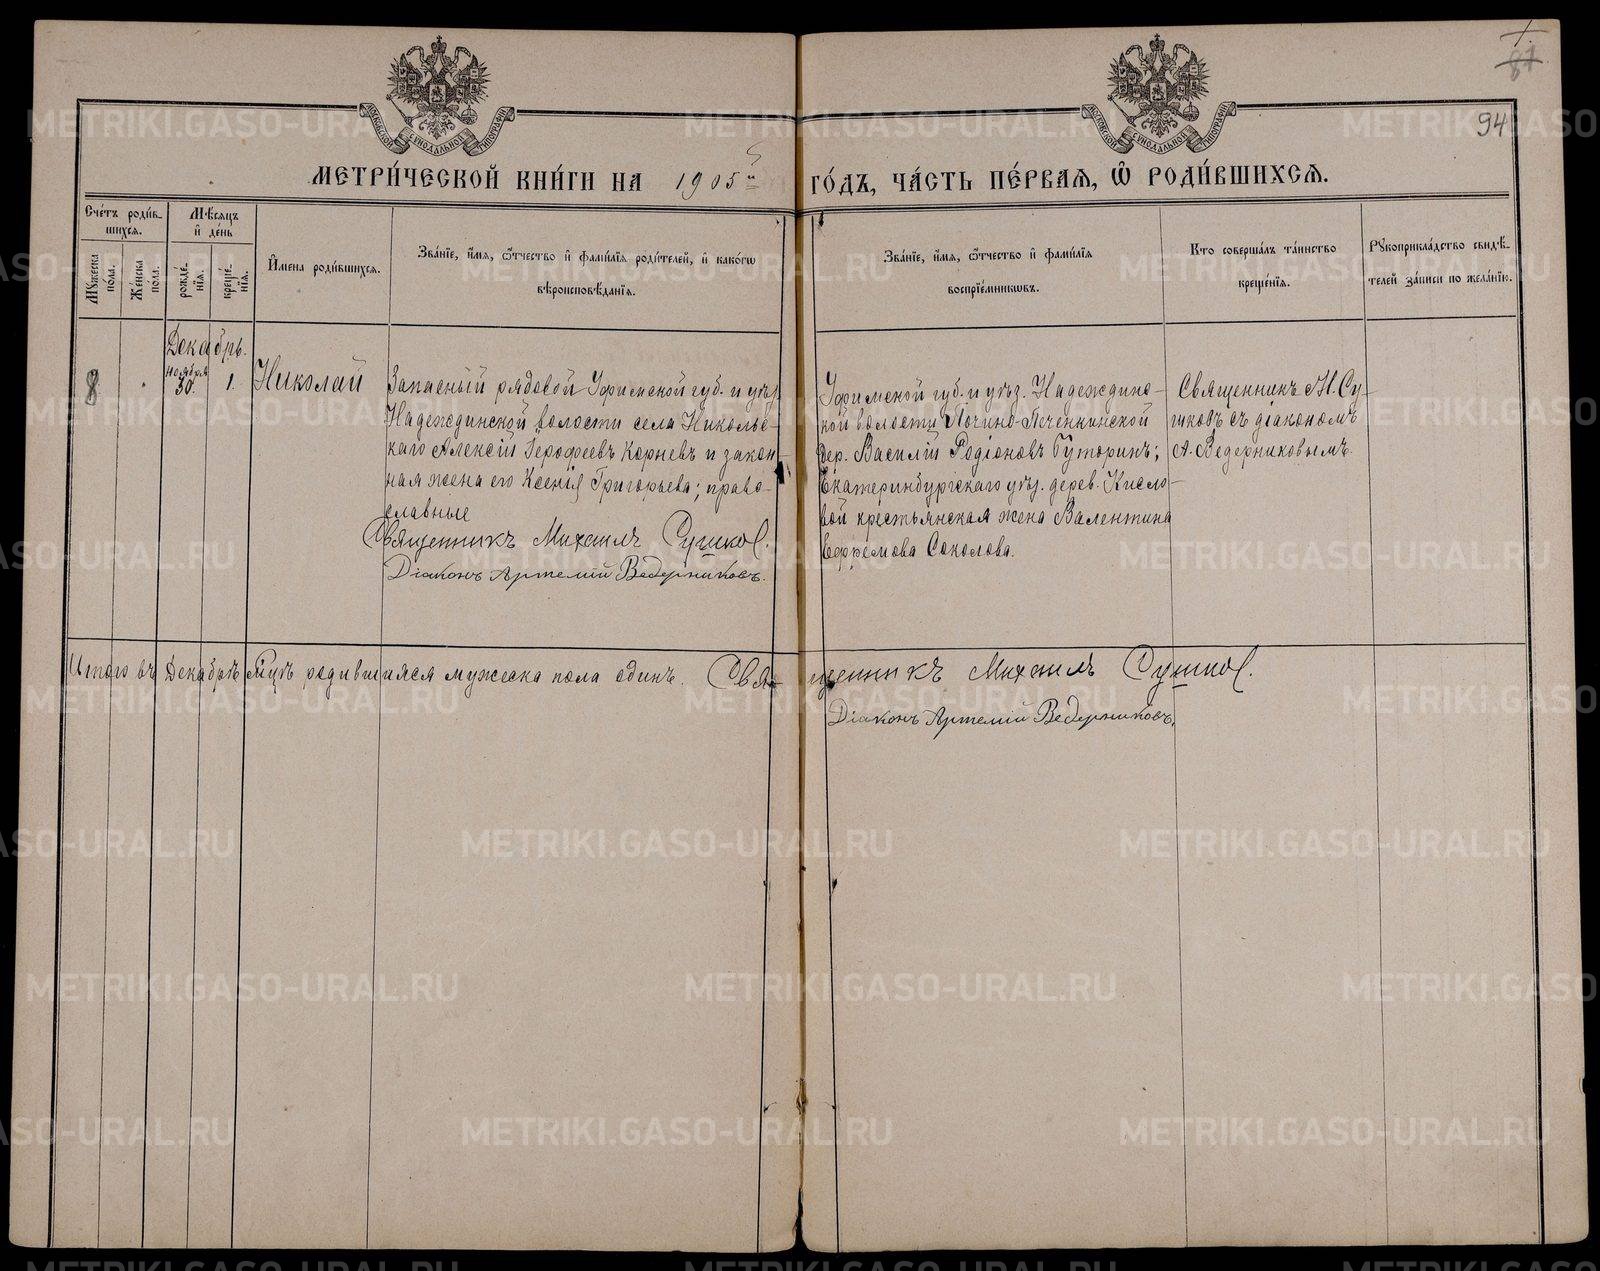 МОСКОВСКОЙ СѴНОДАЛЬНОЙ ТИПОГРАФІИ
МОСКОВСКОЙ СѴНОДАЛЬНОЙ ТИПОГРАФІИ
94
МЕТРИ́ЧЕСКОЙ КНИ́ГИ НА 1905й ГО́ДЪ, ЧА́СТЬ ПЕ́РВАЯ, Ѿ РОДИ́ВШИХСЯ.
Сче́тъ роди́в-
шихся.
Мꙋжеска по́ла.
Же́нска по́ла.
Мѣ́сяцъ и҆ де́нь
рожде́-
нїя.
креще́-
нїя.
И҆мена роди́вшихся.
Зва́нїе, и҆́мя, ѻ҆́тчество и҆ фами́лїя роди́телей, и҆ како́гѡ
вѣроисповѣ́данїя.
Зва́нїе, и҆́мя, ѻ҆́тчество и҆ фами́лїя
воспрїе́мникѡвъ.
Кто соверша́лъ та́инство
креще́нїя.
Рꙋкоприкла́дство свидѣ́-
телей за́писи по жела́нїю.
Декабрь.
8
ноября
30.
1.
Николай
Запасный рядовой Уфимской губ. и уѣз.
Надеждинской волости села Никольс-
каго Алексій Іерофеевъ Корневъ и закон-
ная жена его Ксенія Григорьева; право-
славные
Священникъ Михаилъ Сушков.
Діаконъ Артемій Ведерниковъ.
Уфимской губ. и уѣз. Надеждинс-
кой волости
дер. Василій Родіоновъ Буторинъ;
Екатеринбургскаго уѣз. дерев. Кисло-
вой крестьянская жена Валентина
Ефремова Соколова.
Священникъ М. Су-
шковъ съ діакономъ
А. Ведерниковымъ.
Итого въ Декабрѣ м-цѣ родившияся мужска пола одинъ. Священникъ Михаилъ Сушков.
Діаконъ Артемій Ведерниковъ.
METRIKI.GASO-URAL.RU